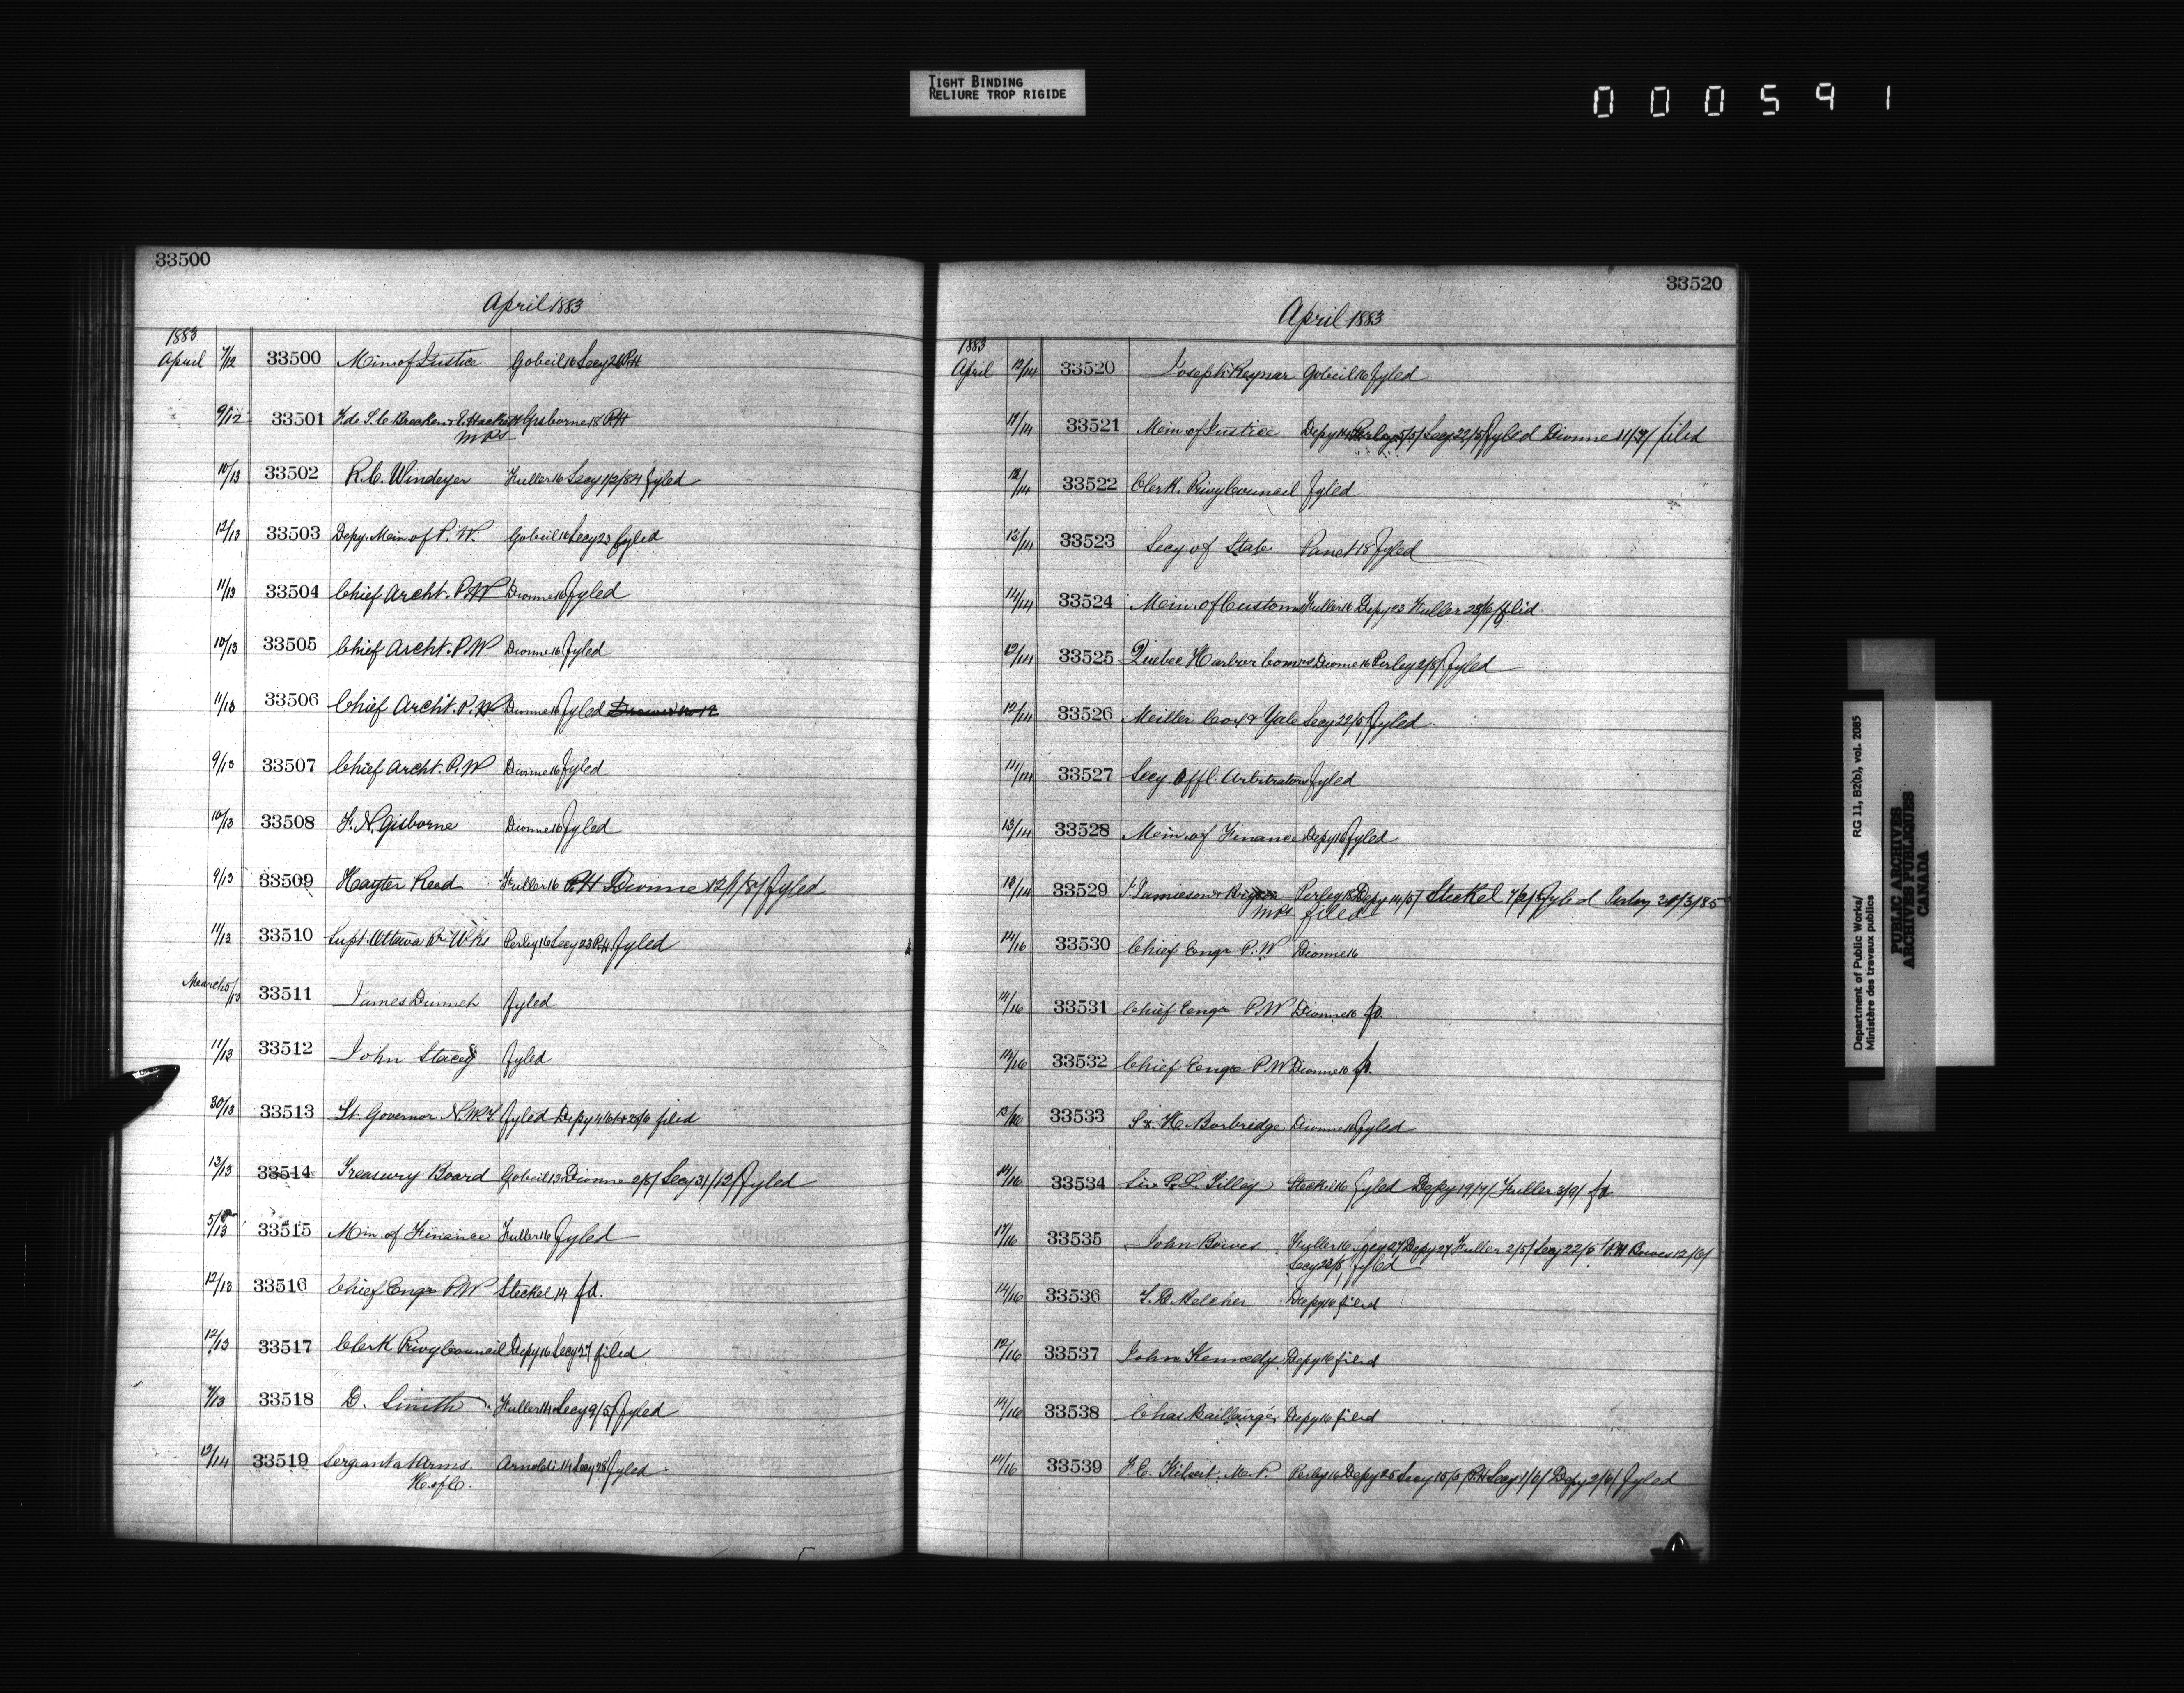 TIGHT BINDING
RELIURE TROP RIGIDE
000591
33500
April 1883
1883
April 7/12 33500 Min of Justice Gobeil 16 Secy 26 P.H
9/12 33501 Gisborne 18 P.H
MPs
10/13 33502 R.C. Windeyer Fuller 16 Secy 1/2/84 fyled
12/13 33503 Depy. Min of P.W. Gobeil 16 Secy 23 fyled
11/13 33504 Chief Archt. P.W Dionne 16 fyled
10/13 33505 Chief Archt. P.W Dionne 16 fyled
11/13 33506 Chief Archt. P.W Dionne 16 fyled
9/13 33507 Chief Archt. P.W Dionne 16 fyled
10/13 33508 F.N. Gisborne Dionne 16 fyled
9/13 33509 Hayter Reed Fuller 16 P.H Dionne fyled
11/13 33510 Supt. Ottawa Rr Wks Perley 16 Secy 23 P.H. fyled
March 5/13 33511 James fyled
11/13 33512 John Stacey fyled
30/13 33513 Lt. Governor N.W.T fyled Depy filed
13/13 33514 Treasury Board Gobeil 13 Dionne 2/5/ Secy 31/12/ fyled
5/13 33515 Min. of Finance Fuller 16 fyled
12/13 33516 Chief Engr P.W Steckel 14 fd.
12/13 33517 Clerk Privy Council Depy 16 Secy 27 filed
7/13 33518 D. Smith Fuller 14 Secy 9/5/ fyled
12/14 33519 Sergeant at Arms Arnoldi 14 Secy 28 fyled
H. of C.
33520
April 1883
1883
April 12/14 33520 Joseph Reynar Gobeil 16 fyled
11/14 33521 Min of Justice Depy 14 Perley 5/5/ Secy 22/5/ fyled Dionne 11/3/ filed
12/14 33522 Clerk. Privy Council fyled
13/14 33523 Secy of State Panet 18 fyled
14/14 33524 Min. of Customs Fuller 16 Depy 23 Fuller 28/6/ filed
12/14 33525 Quebec Harbor Comrs Dionne 16 Perley 2/5/ fyled
12/14 33526 Miller Cox & Yale Secy 22/5/ fyled
14/14 33527 Secy Offl. Arbitrators fyled
13/14 33528 Min. of Finance Depy 16 fyled
13/14 33529 J. Jamieson & Perley 18 Depy 14/5/ Steckel 7/2/ fyled Perley 31/3/85
MPs filed
14/16 33530 Chief Engr P.W Dionne 16
14/16 33531 Chief Engr P.W Dionne 16 fd.
14/16 33532 Chief Engr P.W Dionne 16 fd.
13/16 33533 S. & H. Borbridge Dionne 16 fyled
14/16 33534 Sir S.L. Tilley Steckel 16 fyled Depy 19/7/ Fuller 3/9/ fd
17/16 33535 John Bowes Fuller 16 Secy 27 Depy 27 Fuller 2/5/ Secy 22/5/ P.H Bowes 12/6/
Secy 22/5, fyled
14/16 33536 Belcher Depy 16 filed
12/16 33537 John Kennedy Depy 16 filed
14/16 33538 Chas Baillairgé Depy 16 filed
14/16 33539 F.E. Kilvert. M.P. Perley 16 Depy 25 Secy 15/5/ P.H Secy 1/6/ Depy 2/6/ fyled
Department of Public Works/ RG 11, B2(b), vol. 2085
Ministère des travaux publics
PUBLIC ARCHIVES
ARCHIVES PUBLIQUES
CANADA